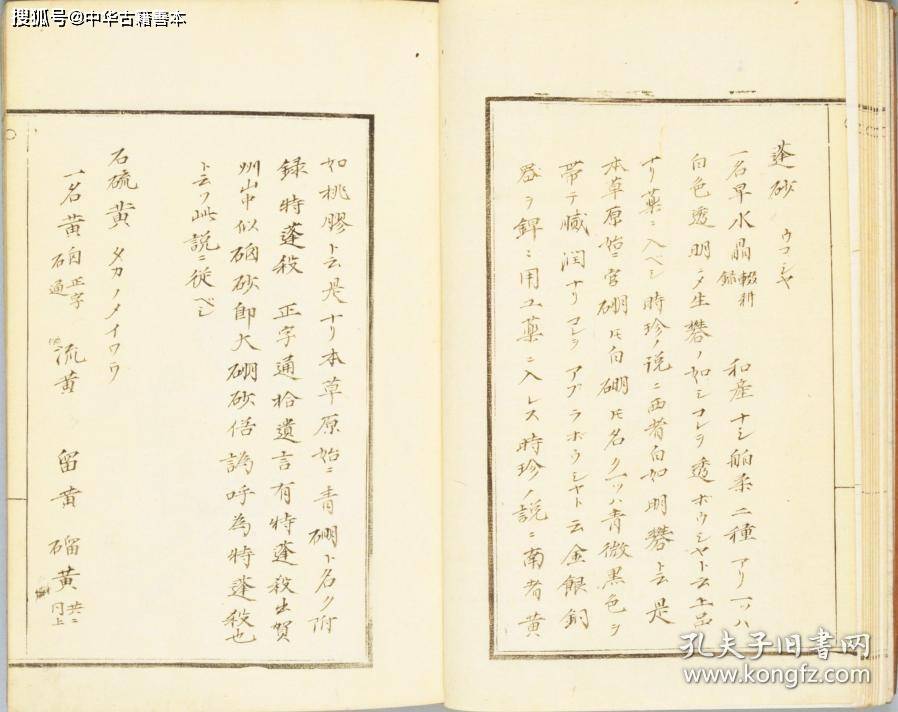 搜狐号@中华古籍善本
蓬砂 ウコシヤ
一名早水晶 輟耕録 和産ナシ舶来二種アリ一ツハ
白色透明ニメ生礬ノ如シコレヲ透ボウシヤト云上品
ナリ薬ニ入ベシ時珍ノ説ニ西者白如明礬ト云是
本草原始ニ官硼ㇳモ白硼ㇳモ名ク一ツハ青微黒色ヲ
帯テ膩潤ナリコレヲアブラボウシヤト云金銀銅
器ヲ銲ニ用ユ薬ニ入レス時珍ノ説ニ南者黄
如桃膠ト云是ナリ本草原始ニ青硼ト名ク附
録特蓬殺 正字通拾遺言有特蓬殺出賀
州山中似硇砂即大硼砂俗譌呼為特蓬殺也
ト云フ此説ニ従ベシ
石硫黄 タカノメイワウ
一名黄 正字通 流黄 留黄 磂黄 共ニ同上
孔夫子旧书网
www.kongfz.com